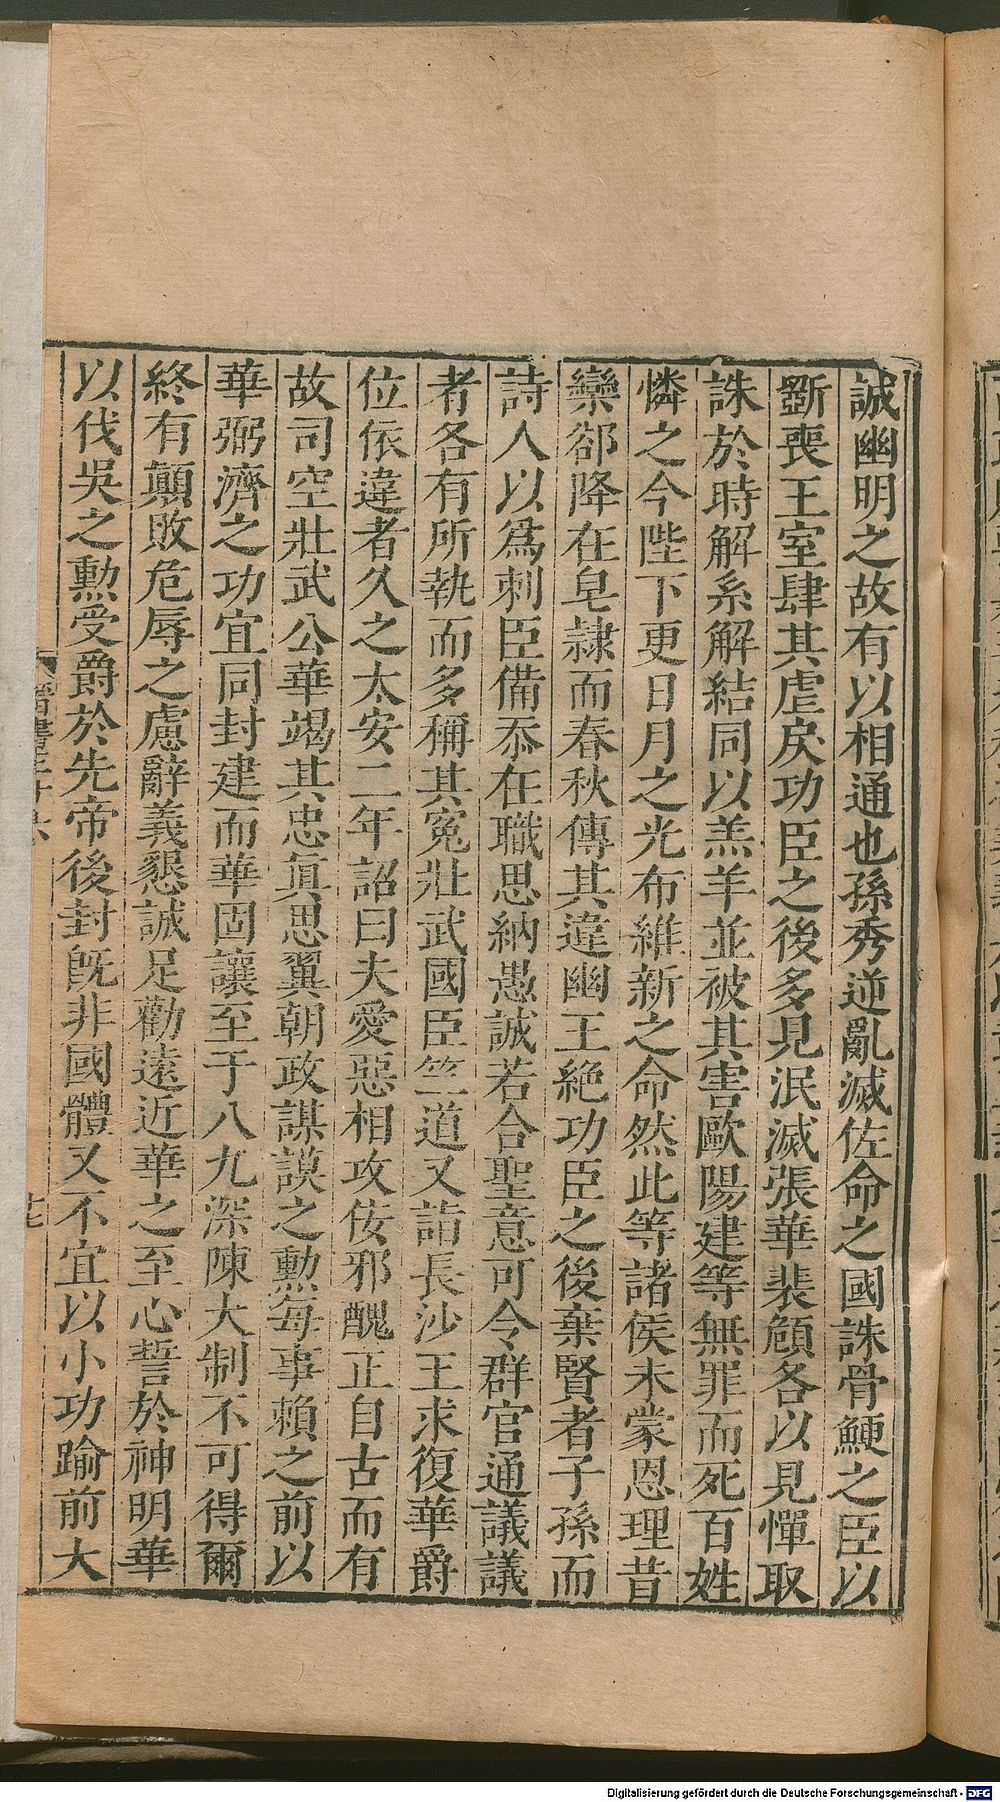 誠幽明之故有以相通也孫秀逆亂滅佐命之國誅骨鯁之臣以
斵喪王室肆其虐戾功臣之後多見泯滅張華裴頠各以見憚取
誅於時解系解結同以羔羊並被其害歐陽建等無罪而死百姓
憐之今陛下更日月之光布維新之命然此等諸侯未蒙恩理昔
欒郤降在皂隸而春秋傳其違幽王絶功臣之後棄賢者子孫而
詩人以爲刺臣備忝在職思納愚誠若合聖意可令群官通議議
者各有所執而多稱其冤壯武國臣竺道又詣長沙王求復華爵
位依違者久之太安二年詔曰夫愛惡相攻佞邪醜正自古而有
故司空壯武公華竭其忠眞思翼朝政謀謨之勲每事頼之前以
華弼濟之功宜同封建而華固讓至于八九深陳大制不可得爾
終有顛敗危辱之慮辭義懇誠足勸遠近華之至心誓於神明華
以伐吳之勲受爵於先帝後封旣非國體又不宜以小功踰前大
晉書三十六
十七
Digitalisierung gefördert durch die Deutsche Forschungsgemeinschaft - DFG